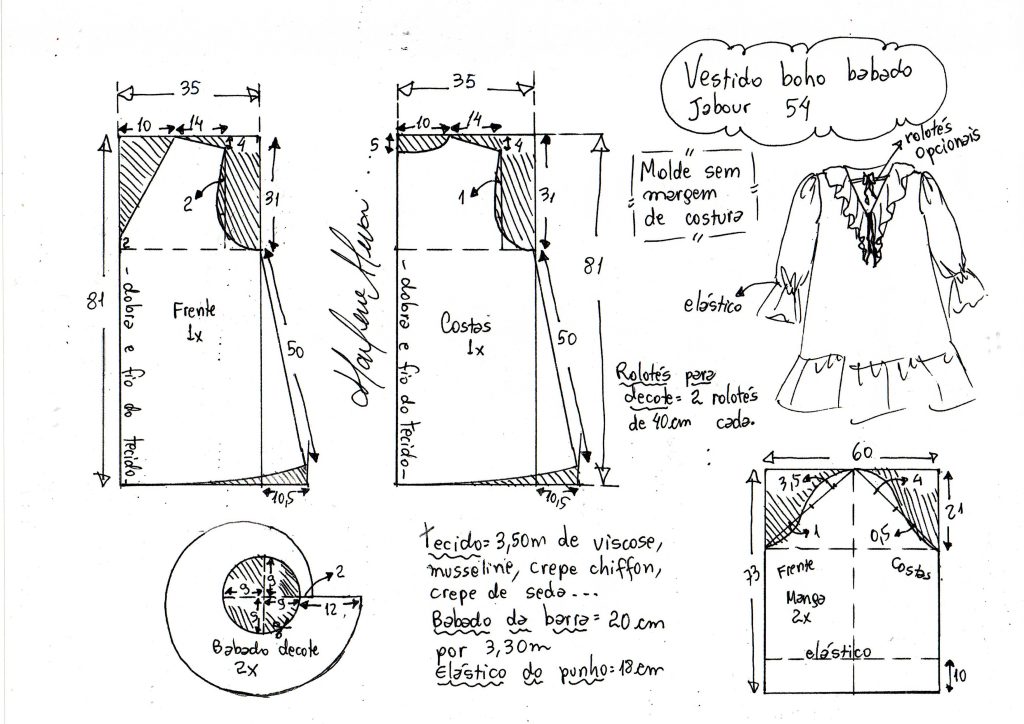 Vestido boho babado
Jabour 54
rolotés
opcionais
Molde sem
margem
de costura
elástico
Rolotés para
decote = 2 rolotés
de 40cm cada.
35
10
14
4
2
31
2
81
Frente
1x
- dobra e fio do tecido -
50
10,5
Marlene Mukai
35
10
14
5
4
1
31
81
Costas
1x
- dobra e fio do tecido -
50
10,5
9
9
9
9
2
12
Babado decote
2x
Tecido = 3,50m de viscose,
musseline, crepe chiffon,
crepe de seda...
Babado da barra = 20 cm
por 3,30m
Elástico do punho = 18cm
60
3,5
4
1
0,5
21
33
Frente
Costas
Manga
2x
elástico
10